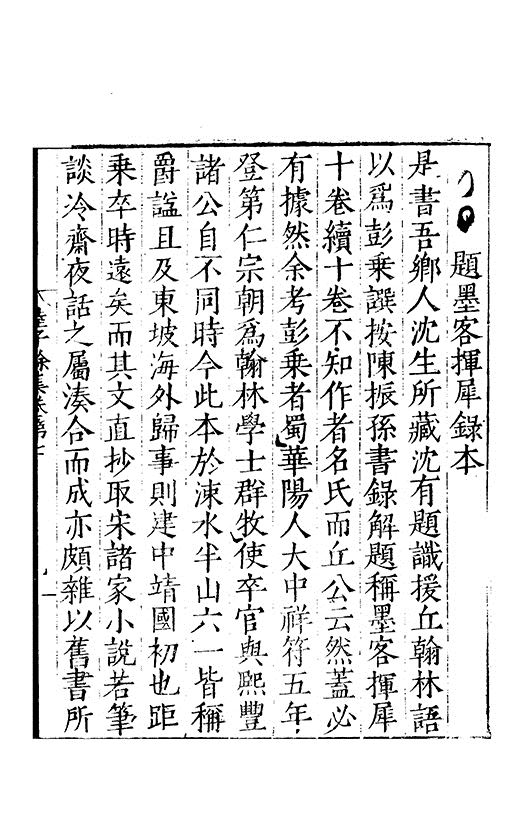 題墨客揮犀錄本
是書吾鄉人沈生所藏沈有題識援丘翰林語
以爲彭乘譔按陳振孫書錄解題稱墨客揮犀
十卷續十卷不知作者名氏而丘公云然蓋必
有據然余考彭乘者蜀華陽人大中祥符五年
登第仁宗朝爲翰林學士群牧使卒官與熙豐
諸公自不同時今此本於涑水半山六一皆稱
爵諡且及東坡海外歸事則建中靖國初也距
乘卒時遠矣而其文直抄取宋諸家小說若筆
談冷齋夜話之屬湊合而成亦頗雜以舊書所